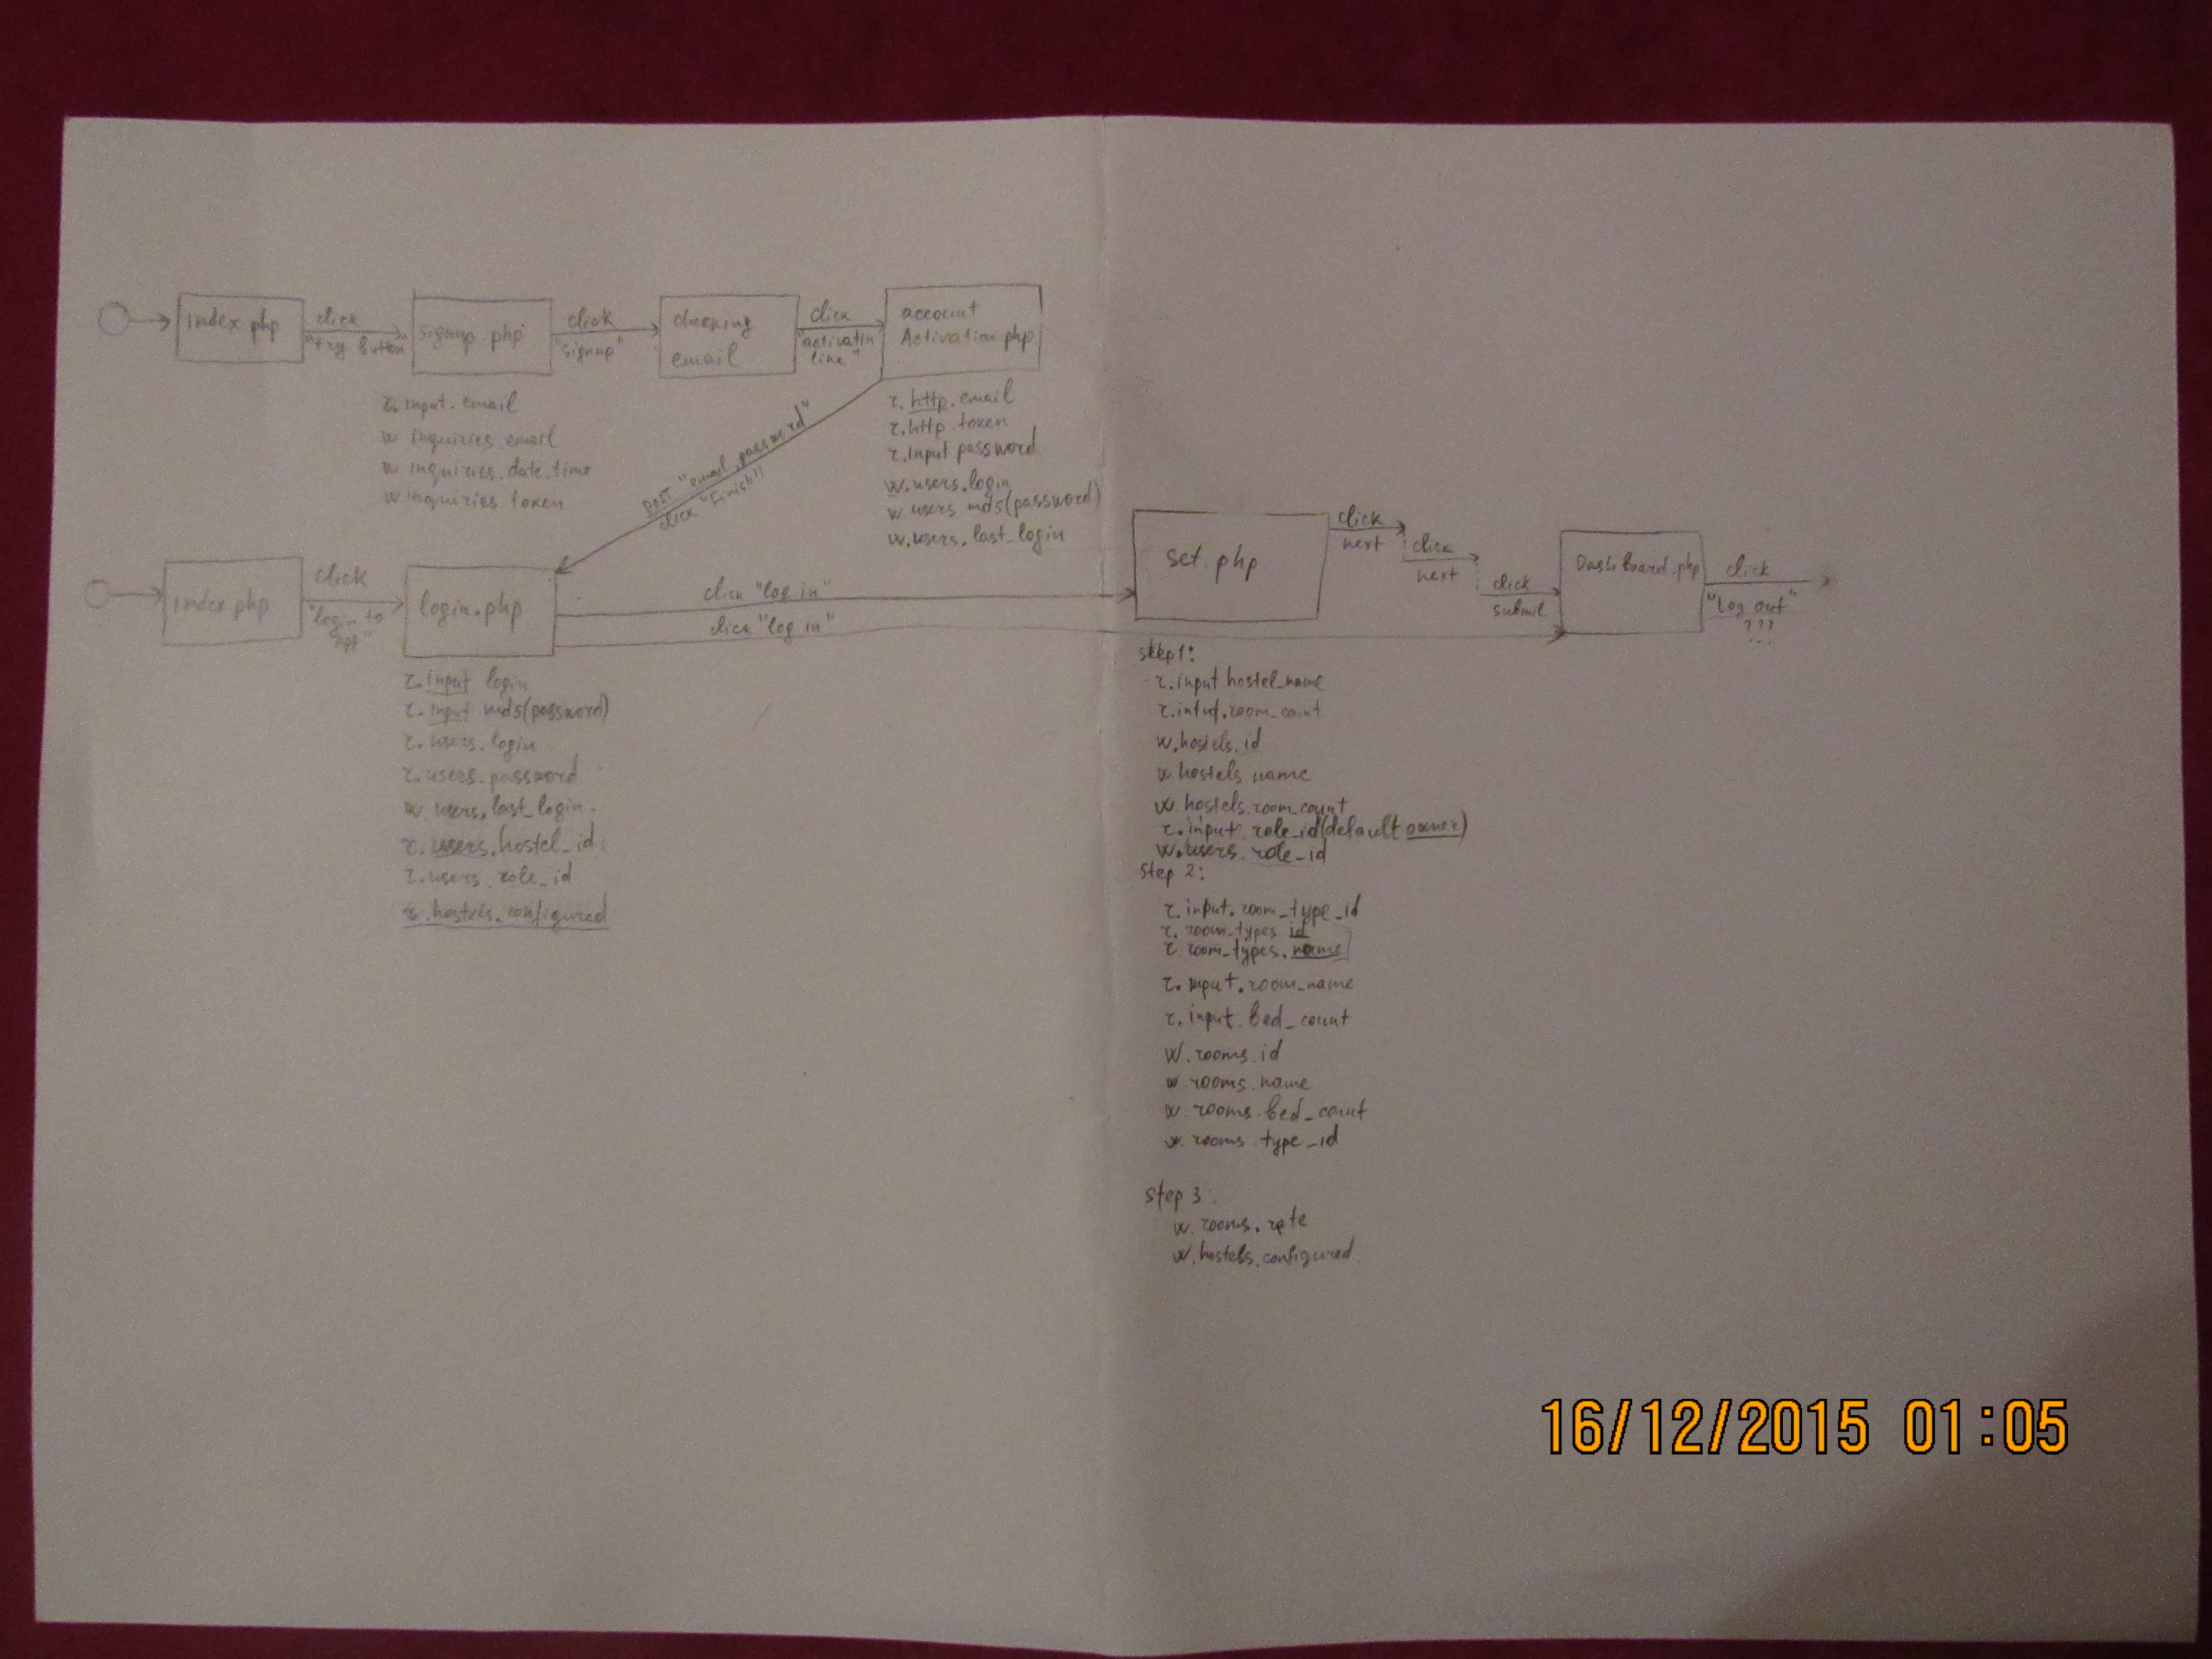 index.php
click
"try button"
signup.php
click
"signup"
checking
email
click
"activatin
line"
account
Activation.php
r. input. email
w inquiries email
w inquiries. date_time
w inquiries token
r. http. email
r. http. token
r. Input password
w. users. login
w users md5(password)
w. users. last_login
POST "email, password"
click "Finish"
index.php
click
"login to
app"
login.php
click "log in"
click "log in"
r. input login
r. input md5(password)
r. users. login
r. users. password
w users. last_login.
r. users. hostel_id.
r. users role_id
r. hostels. configured
set.php
click
next
click
next
click
submit.
Dashboard.php
click
"Log out"
???
...
step1:
r. input hostel_name
r. intut. room_count
w. hostels. id
w hostels name
w. hostels. room_count
r. input role_id(default owner)
w. users. role_id
step 2:
r. input. room_type_id
r. room_types id
r room_types. name
r. input. room_name
r. input. bed_count
w. rooms. id
w rooms. name
w. rooms. bed_count
w. rooms type_id
step 3:
w. rooms. rate
w. hostels. configured.
16/12/2015 01:05